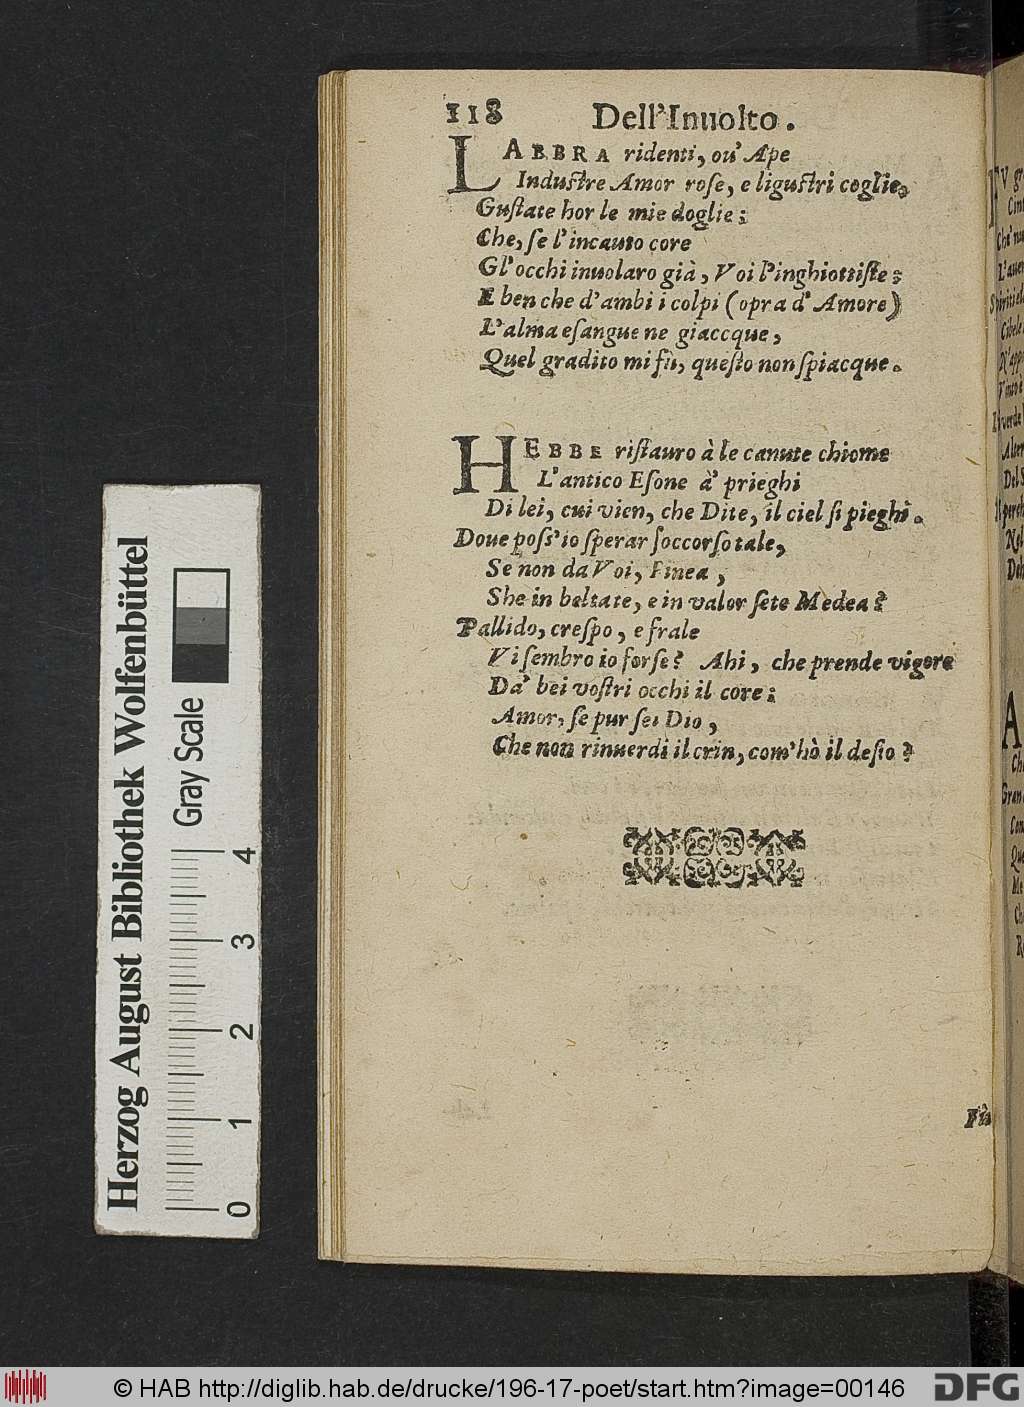 118 Dell'Inuolto.
LABBRA ridenti, ou' Ape
Induſtre Amor roſe, e liguſtri coglie,
Guſtate hor le mie doglie;
Che, ſe l'incauto core
Gl'occhi inuolaro già, Voi l'inghiottiſte;
E ben che d'ambi i colpi (opra d'Amore)
L'alma eſangue ne giaccque,
Quel gradito mi fù, queſto non ſpiacque.
HEBBE riſtauro à le canute chiome
L'antico Eſone a' prieghi
Di lei, cui vien, che Dite, il ciel ſi pieghi.
Doue poſs'io ſperar ſoccorſo tale,
Se non da Voi, Pinea,
She in beltate, e in valor ſete Medea?
Pallido, creſpo, e frale
Vi ſembro io forſe? Ahi, che prende vigore
Da' bei voſtri occhi il core;
Amor, ſe pur ſei Dio,
Che non rinuerdi il crin, com'hò il deſio?
Herzog August Bibliothek Wolfenbüttel
Gray Scale
0 1 2 3 4
© HAB http://diglib.hab.de/drucke/196-17-poet/start.htm?image=00146
DFG